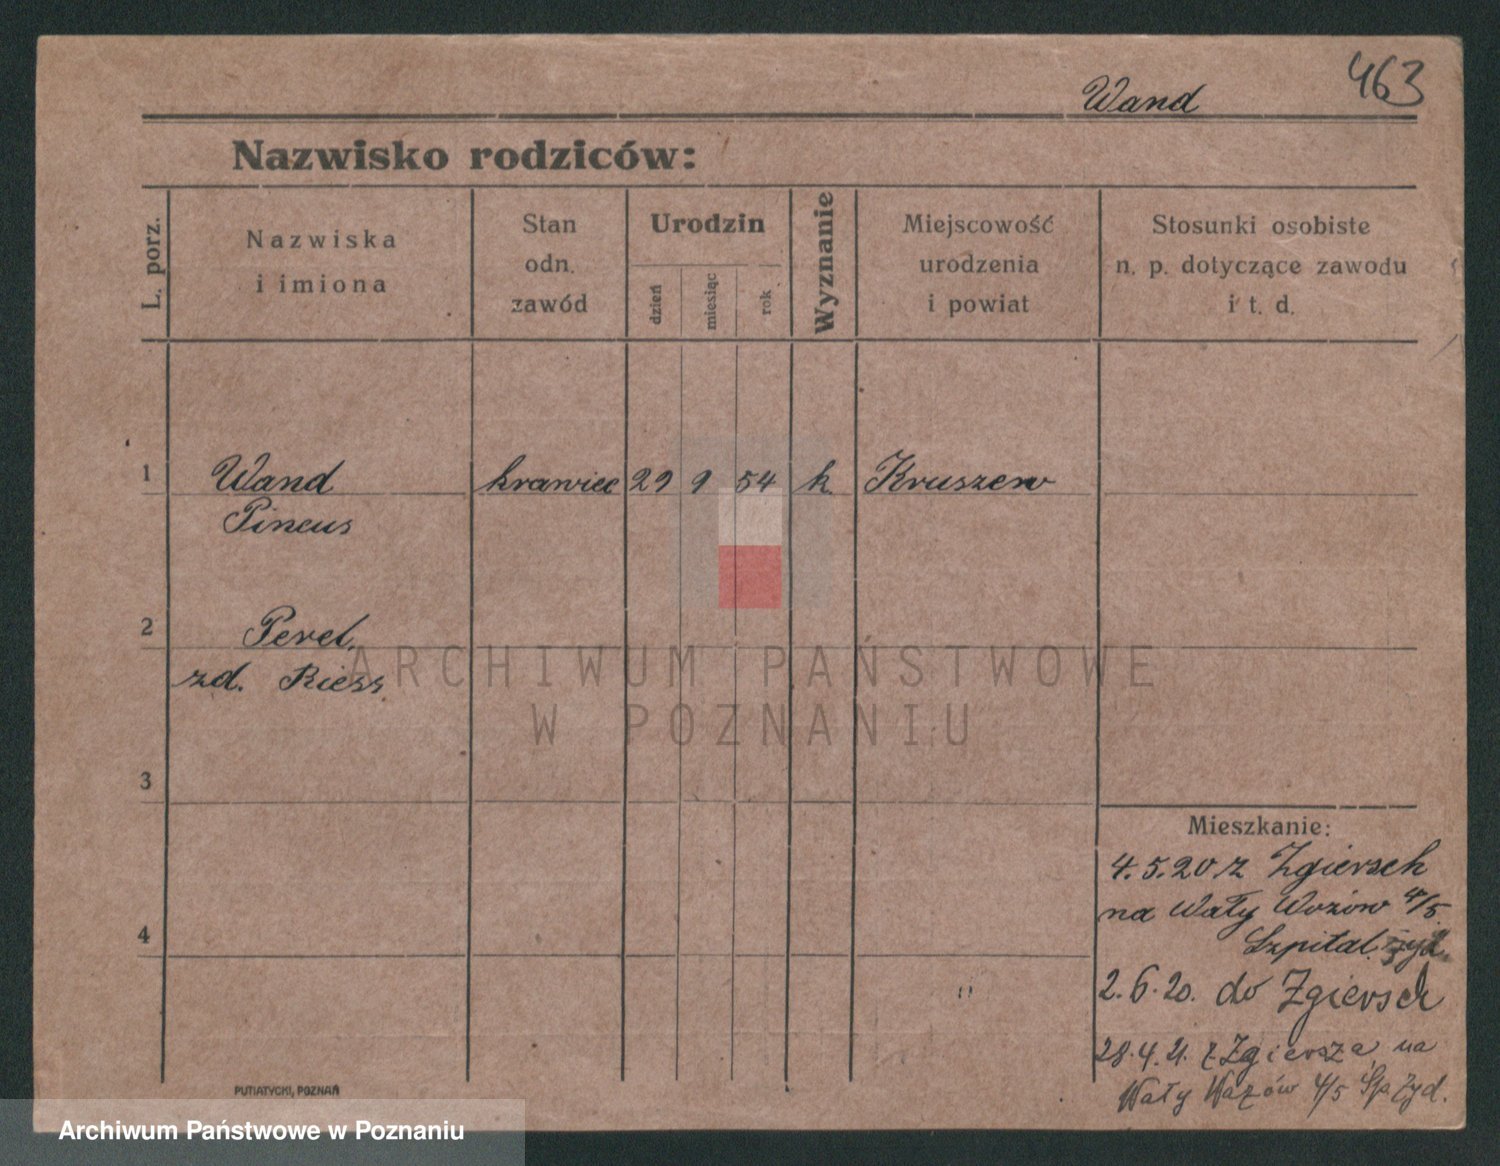 463
Wand
Nazwisko rodziców:
L. porz.
Nazwiska
i imiona
Stan
odn.
zawód
Urodzin
dzień
miesiąc
rok
Wyznanie
Miejscowość
urodzenia
i powiat
Stosunki osobiste
n. p. dotyczące zawodu
i t. d.
1 Wand krawiec 29 9 54 k Kruszew
Pincus
2 Perel,
zd. Riess
ARCHIWUM PAŃSTWOWE
W POZNANIU
3
Mieszkanie:
4.5.20 z Zgiersch
na Wały Wazów 4/5
Szpital żyd.
4
2.6.20. do Zgiersch
28.4.21. z Zgiersza na
Wały Wazów 4/5 Szp. Żyd.
PUTIATYCKI, POZNAŃ
Archiwum Państwowe w Poznaniu